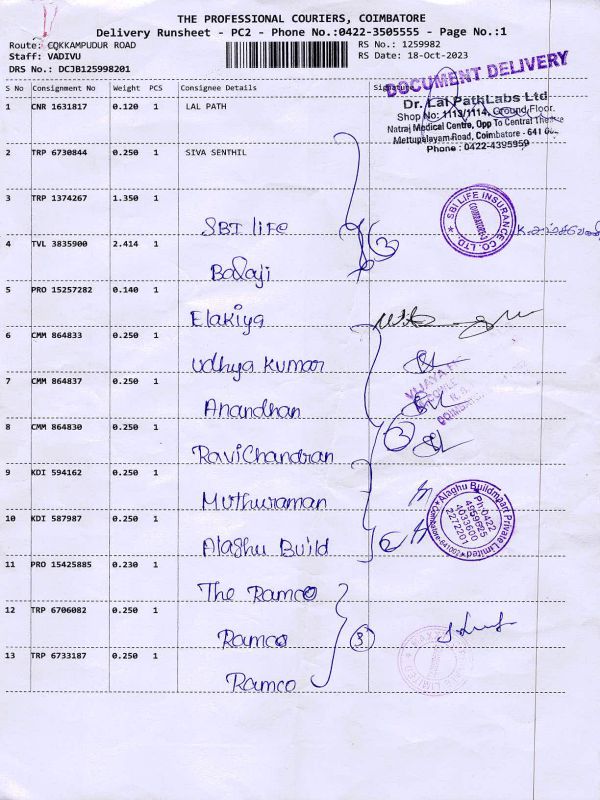 THE PROFESSIONAL COURIERS, COIMBATORE
Delivery Runsheet - PC2 - Phone No.:0422-3505555 - Page No.:1
Route: COKKAMPUDUR ROAD RS No.: 1259982
Staff: VADIVU RS Date: 18-Oct-2023
DRS No.: DCJB125998201
DOCUMENT DELIVERY
S No Consignment No Weight PCS Consignee Details Signature
1 CNR 1631817 0.120 1 LAL PATH
Dr. Lal PathLabs Ltd
Shop No: 1113/1114, Ground Floor.
Natraj Medical Centre, Opp To Central Theatre
Mettupalayam Road, Coimbatore - 641
Phone : 0422-4395959
2 TRP 6730844 0.250 1 SIVA SENTHIL
3 TRP 1374267 1.350 1 SBI LIFE
SBI LIFE INSURANCE CO. LTD.
4 TVL 3835900 2.414 1 Balaji
3
5 PRO 15257282 0.140 1 Elakiya
6 CMM 864833 0.250 1 Udhya Kumar
7 CMM 864837 0.250 1 Anandhan
8 CMM 864830 0.250 1 RaviChandran
9 KDI 594162 0.250 1 Muthuraman
10 KDI 587987 0.250 1 Alaghu Build
Alaghu Buildmart Private Limited
Ph:0422
4959625
4033600
2272201
11 PRO 15425885 0.230 1 The Ramco
12 TRP 6706082 0.250 1 Ramco
3
13 TRP 6733187 0.250 1 Ramco